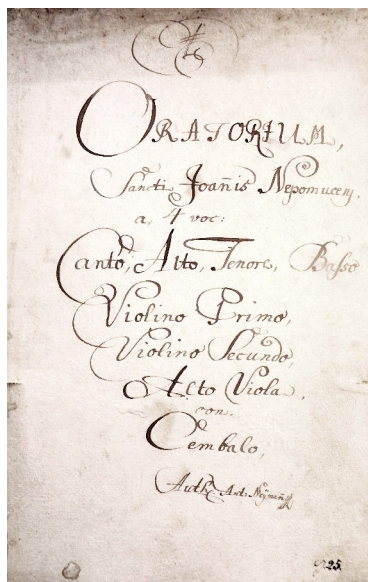 ORATORIUM,
Sancti Joañis Nepomuceni.
a, 4 voc:
Canto, Alto, Tenore, Basso
Violino Primo,
Violino Secundo,
Alto Viola,
con.
Cembalo,
Auth: Ant: Neÿmañ